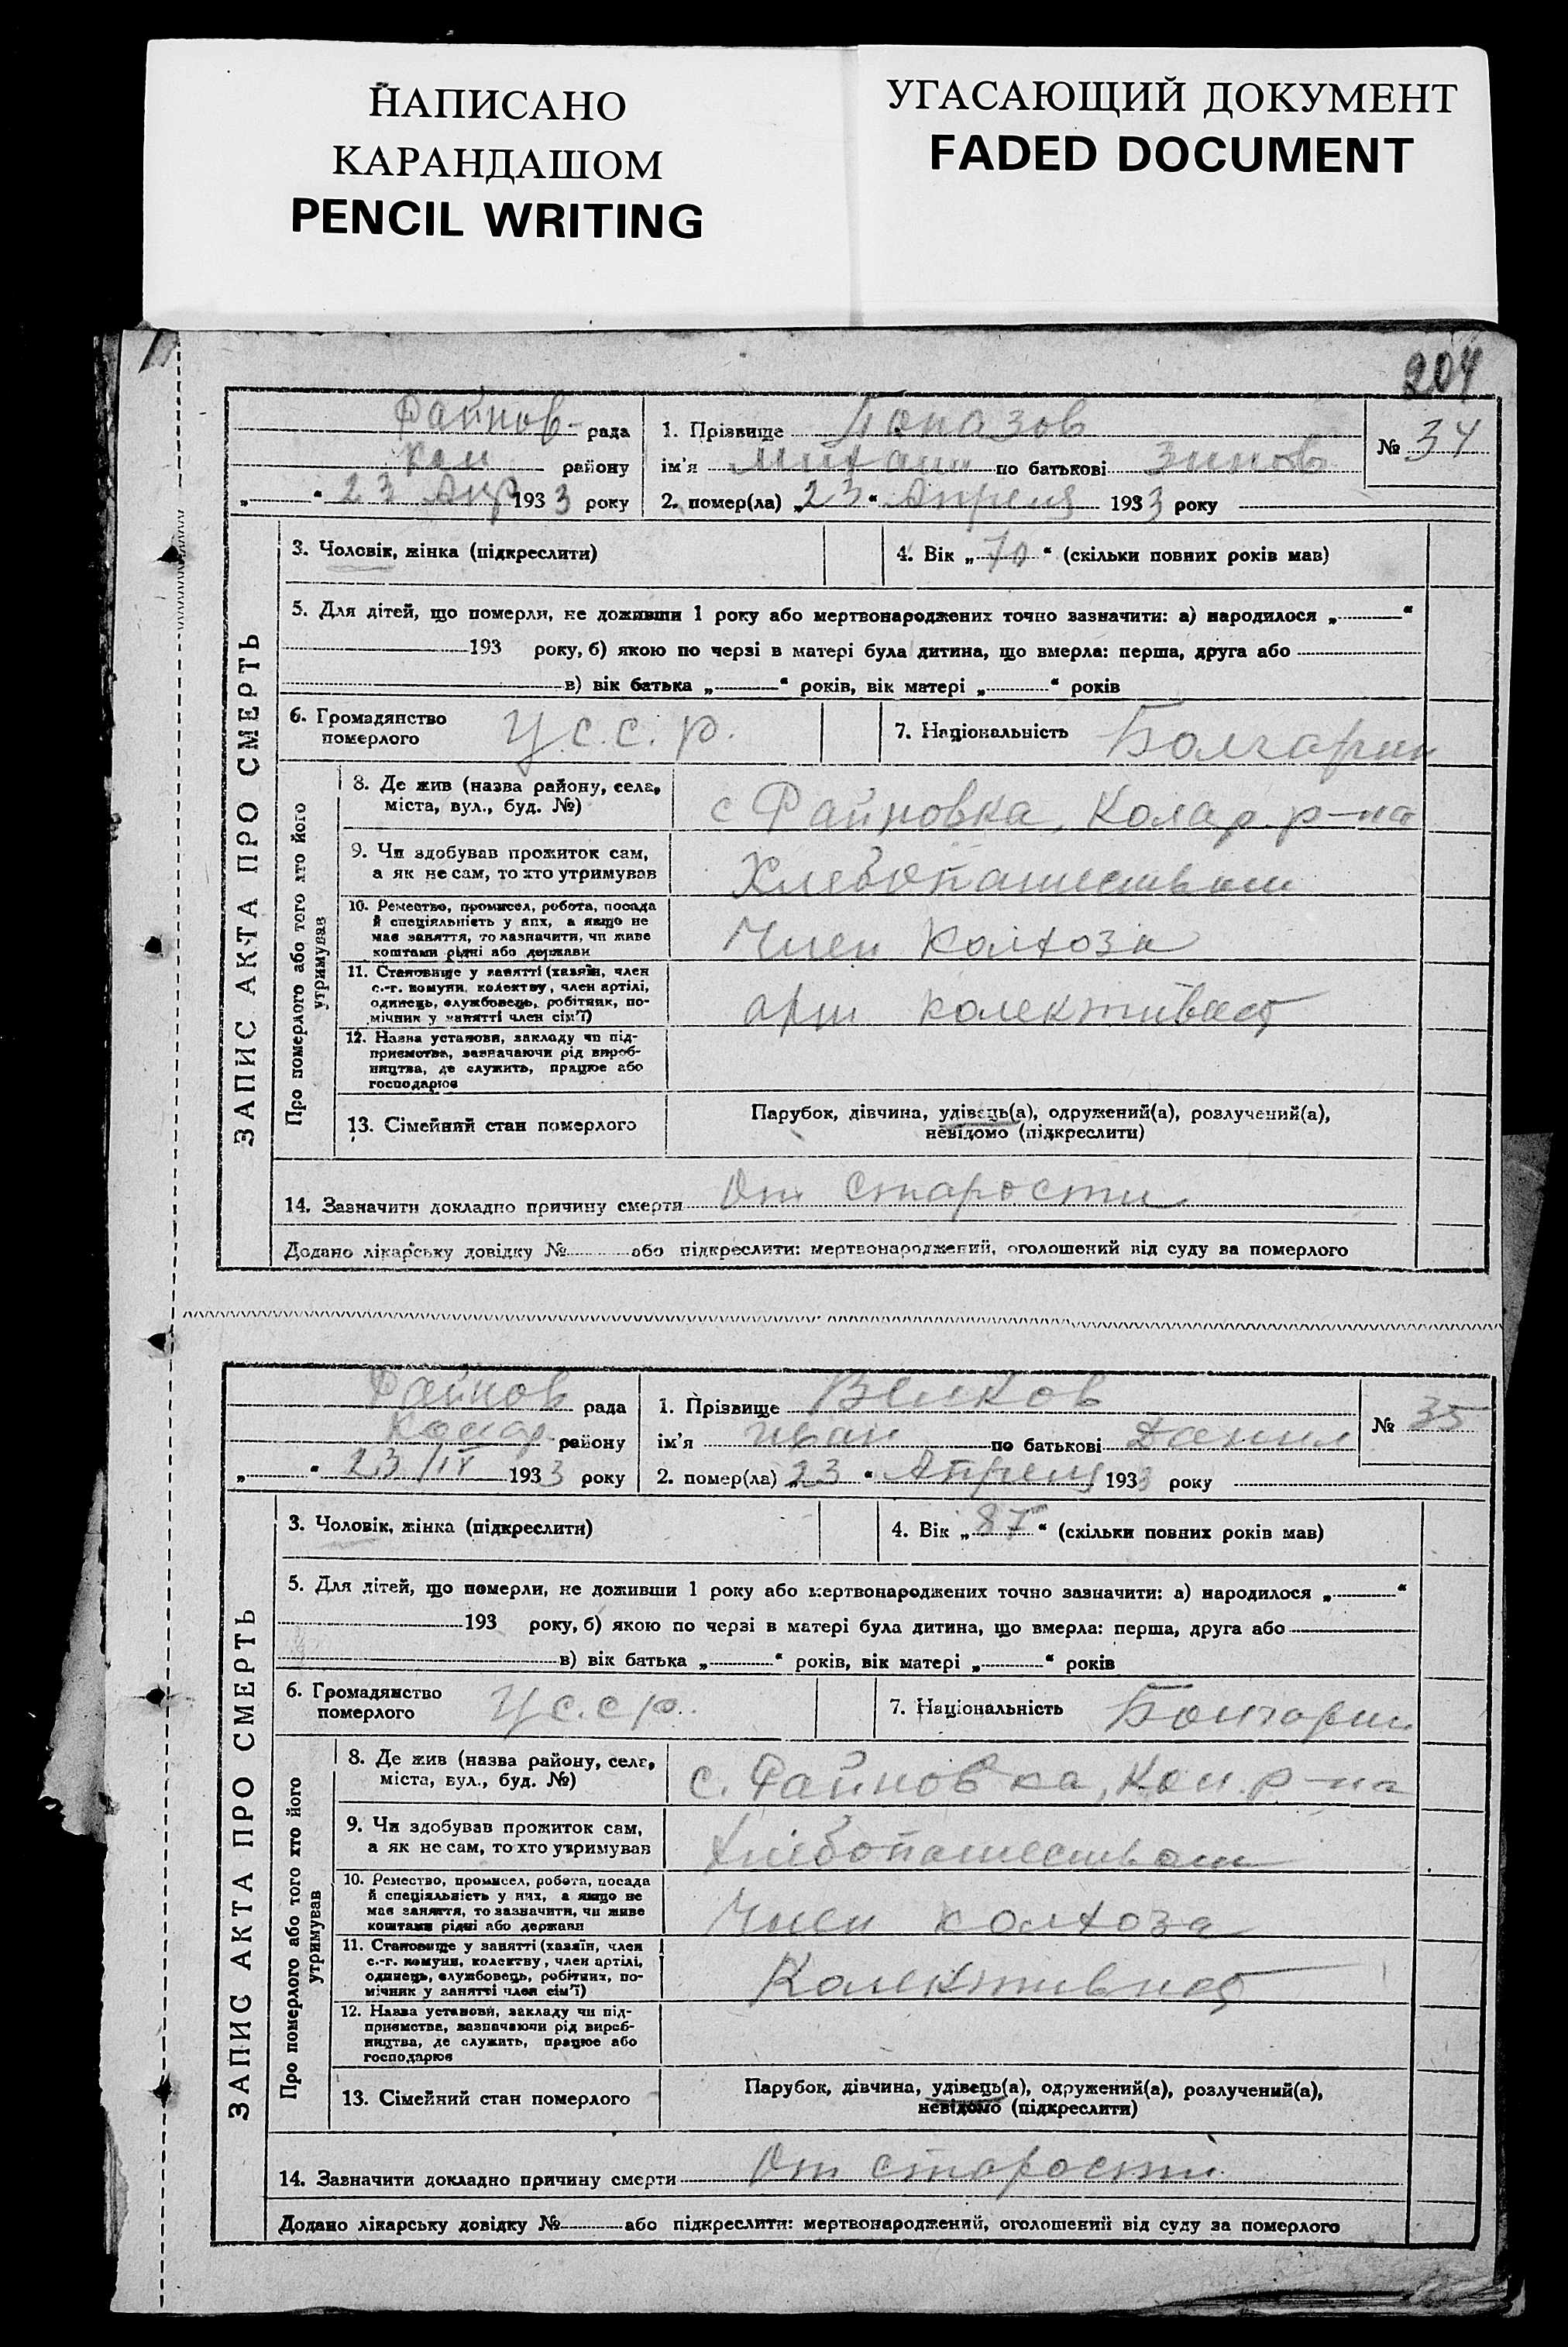 НАПИСАНО
КАРАНДАШОМ
PENCIL WRITING
УГАСАЮЩИЙ ДОКУМЕНТ
FADED DOCUMENT
204
ЗАПИС АКТА ПРО СМЕРТЬ
Файнов- рада
району
„ “ 23 Апр 1933 року
1. Прізвище
ім'я Михаил по батькові Зинов
2. помер(ла) „23“ Апреля 1933 року
№ 34
3. Чоловік, жінка (підкреслити)
4. Вік „70“ (скільки повних років мав)
5. Для дітей, що померли, не доживши 1 року або мертвонароджених точно зазначити: а) народилося „ “
193 року, б) якою по черзі в матері була дитина, що вмерла: перша, друга або
в) вік батька „ “ років, вік матері „ “ років
6. Громадянство померлого У.С.С.Р.
7. Національність Болгарин
Про померлого або того хто його утримував
8. Де жив (назва району, села,
міста, вул., буд. №)
с Файновка, Колар. р-на
9. Чи здобував прожиток сам,
а як не сам, то хто утримував
Хлебопашеством
10. Ремество, промисел, робота, посада
й спеціяльність у них, а якщо не
має заняття, то зазначити, чи живе
коштами рідні або держави
Член Колхоза
11. Становище у занятті (хазяїн, член
с.-г. комуни, колектву, член артілі,
одинець, службовець, робітник, по-
мічник у занятті член сім'ї)
колективист
12. Назва установи, закладу чи під-
приємства, зазначаючи рід вироб-
ництва, де служить, працює або
господарює
13. Сімейний стан померлого
Парубок, дівчина, удівець(а), одружений(а), розлучений(а),
невідомо (підкреслити)
14. Зазначити докладно причину смерти От старости
Додано лікарську довідку № або підкреслити: мертвонароджений, оголошений від суду за померлого
ЗАПИС АКТА ПРО СМЕРТЬ
Файнов рада
Колар. району
„ “ 23/IV 1933 року
1. Прізвище Велков
ім'я Иван по батькові Данил
2. помер(ла) „23“ Апреля 1933 року
№ 35
3. Чоловік, жінка (підкреслити)
4. Вік „87“ (скільки повних років мав)
5. Для дітей, що померли, не доживши 1 року або мертвонароджених точно зазначити: а) народилося „ “
193 року, б) якою по черзі в матері була дитина, що вмерла: перша, друга або
в) вік батька „ “ років, вік матері „ “ років
6. Громадянство померлого У.С.С.Р.
7. Національність Болгарин
Про померлого або того хто його утримував
8. Де жив (назва району, села,
міста, вул., буд. №)
с. Файновка, Кол. р-на
9. Чи здобував прожиток сам,
а як не сам, то хто утримував
Хлебопашеством
10. Ремество, промисел, робота, посада
й спеціяльність у них, а якщо не
має заняття, то зазначити, чи живе
коштами рідні або держави
Член колхоза
11. Становище у занятті (хазяїн, член
с.-г. комуни, колектву, член артілі,
одинець, службовець, робітник, по-
мічник у занятті член сім'ї)
Колективист
12. Назва установи, закладу чи під-
приємства, зазначаючи рід вироб-
ництва, де служить, працює або
господарює
13. Сімейний стан померлого
Парубок, дівчина, удівець(а), одружений(а), розлучений(а),
невідомо (підкреслити)
14. Зазначити докладно причину смерти От старости
Додано лікарську довідку № або підкреслити: мертвонароджений, оголошений від суду за померлого